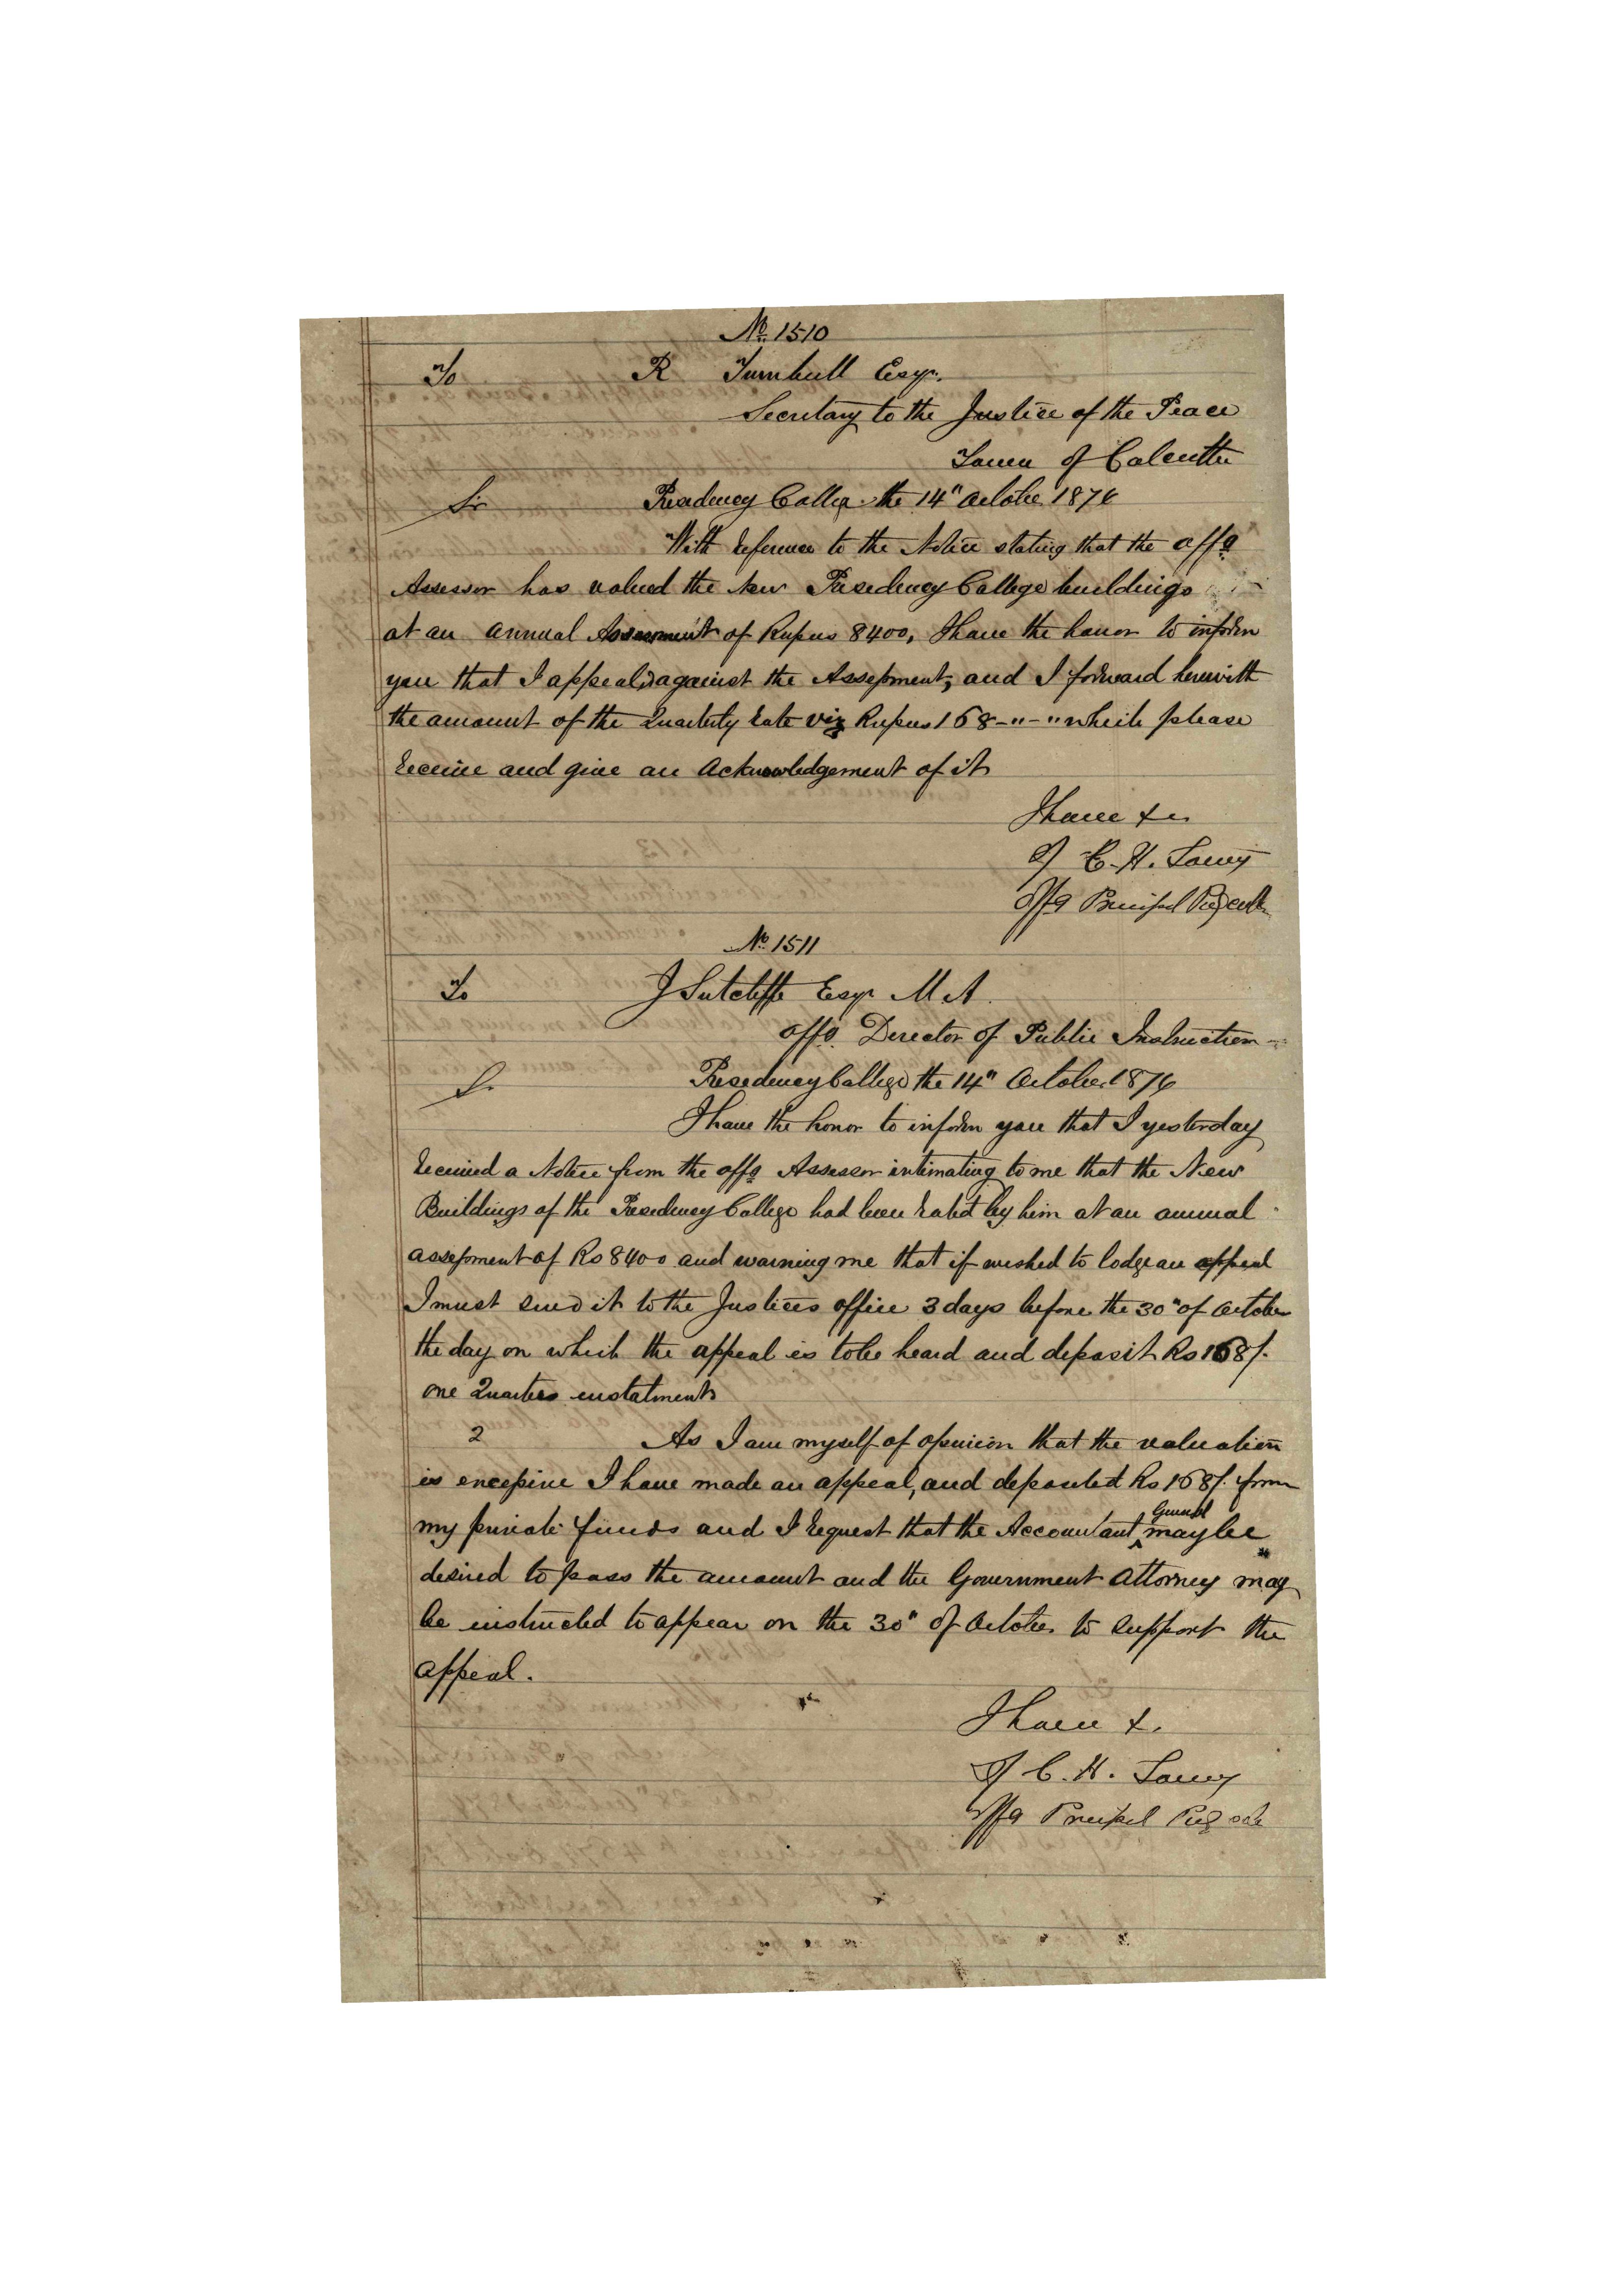 No. 1510
To R Turnbull Esqr.
Secretary to the Justice of the Peace
Town of Calcutta
Sir Presidency College the 14" October 1876
With reference to the Notice stating that the offg
Assessor has valued the new Presidency College buildings
at an annual Assessment of Rupees 8400, I have the honor to inform
you that I appeal against the Assessment, and I forward herewith
the amount of the Quarterly rate viz Rupees 168-"-" which please
receive and give an Acknowledgement of it
I have &c
C. H. Tawney
Offg Principal
No. 1511
To J Sutcliffe Esqr M A.
offg. Director of Public Instruction
Sir Presidency College the 14" October 1876
I have the honor to inform you that I yesterday
received a Notice from the offg Assessor intimating to me that the New
Buildings of the Presidency College had been rated by him at an annual
assessment of Rs 8400 and warning me that if wished to lodge an appeal
I must send it to the Justices office 3 days before the 30" of October
the day on which the appeal is to be heard and deposit Rs 168/.
one Quarters instalments
2 As I am myself of opinion that the valuation
is excessive I have made an appeal, and deposited Rs 168/. from
my private funds and I request that the Accountant General may be
desired to pass the amount and the Government Attorney may
be instructed to appear on the 30" of October to support the
appeal.
I have &.
C. H. Tawney
Offg Principal